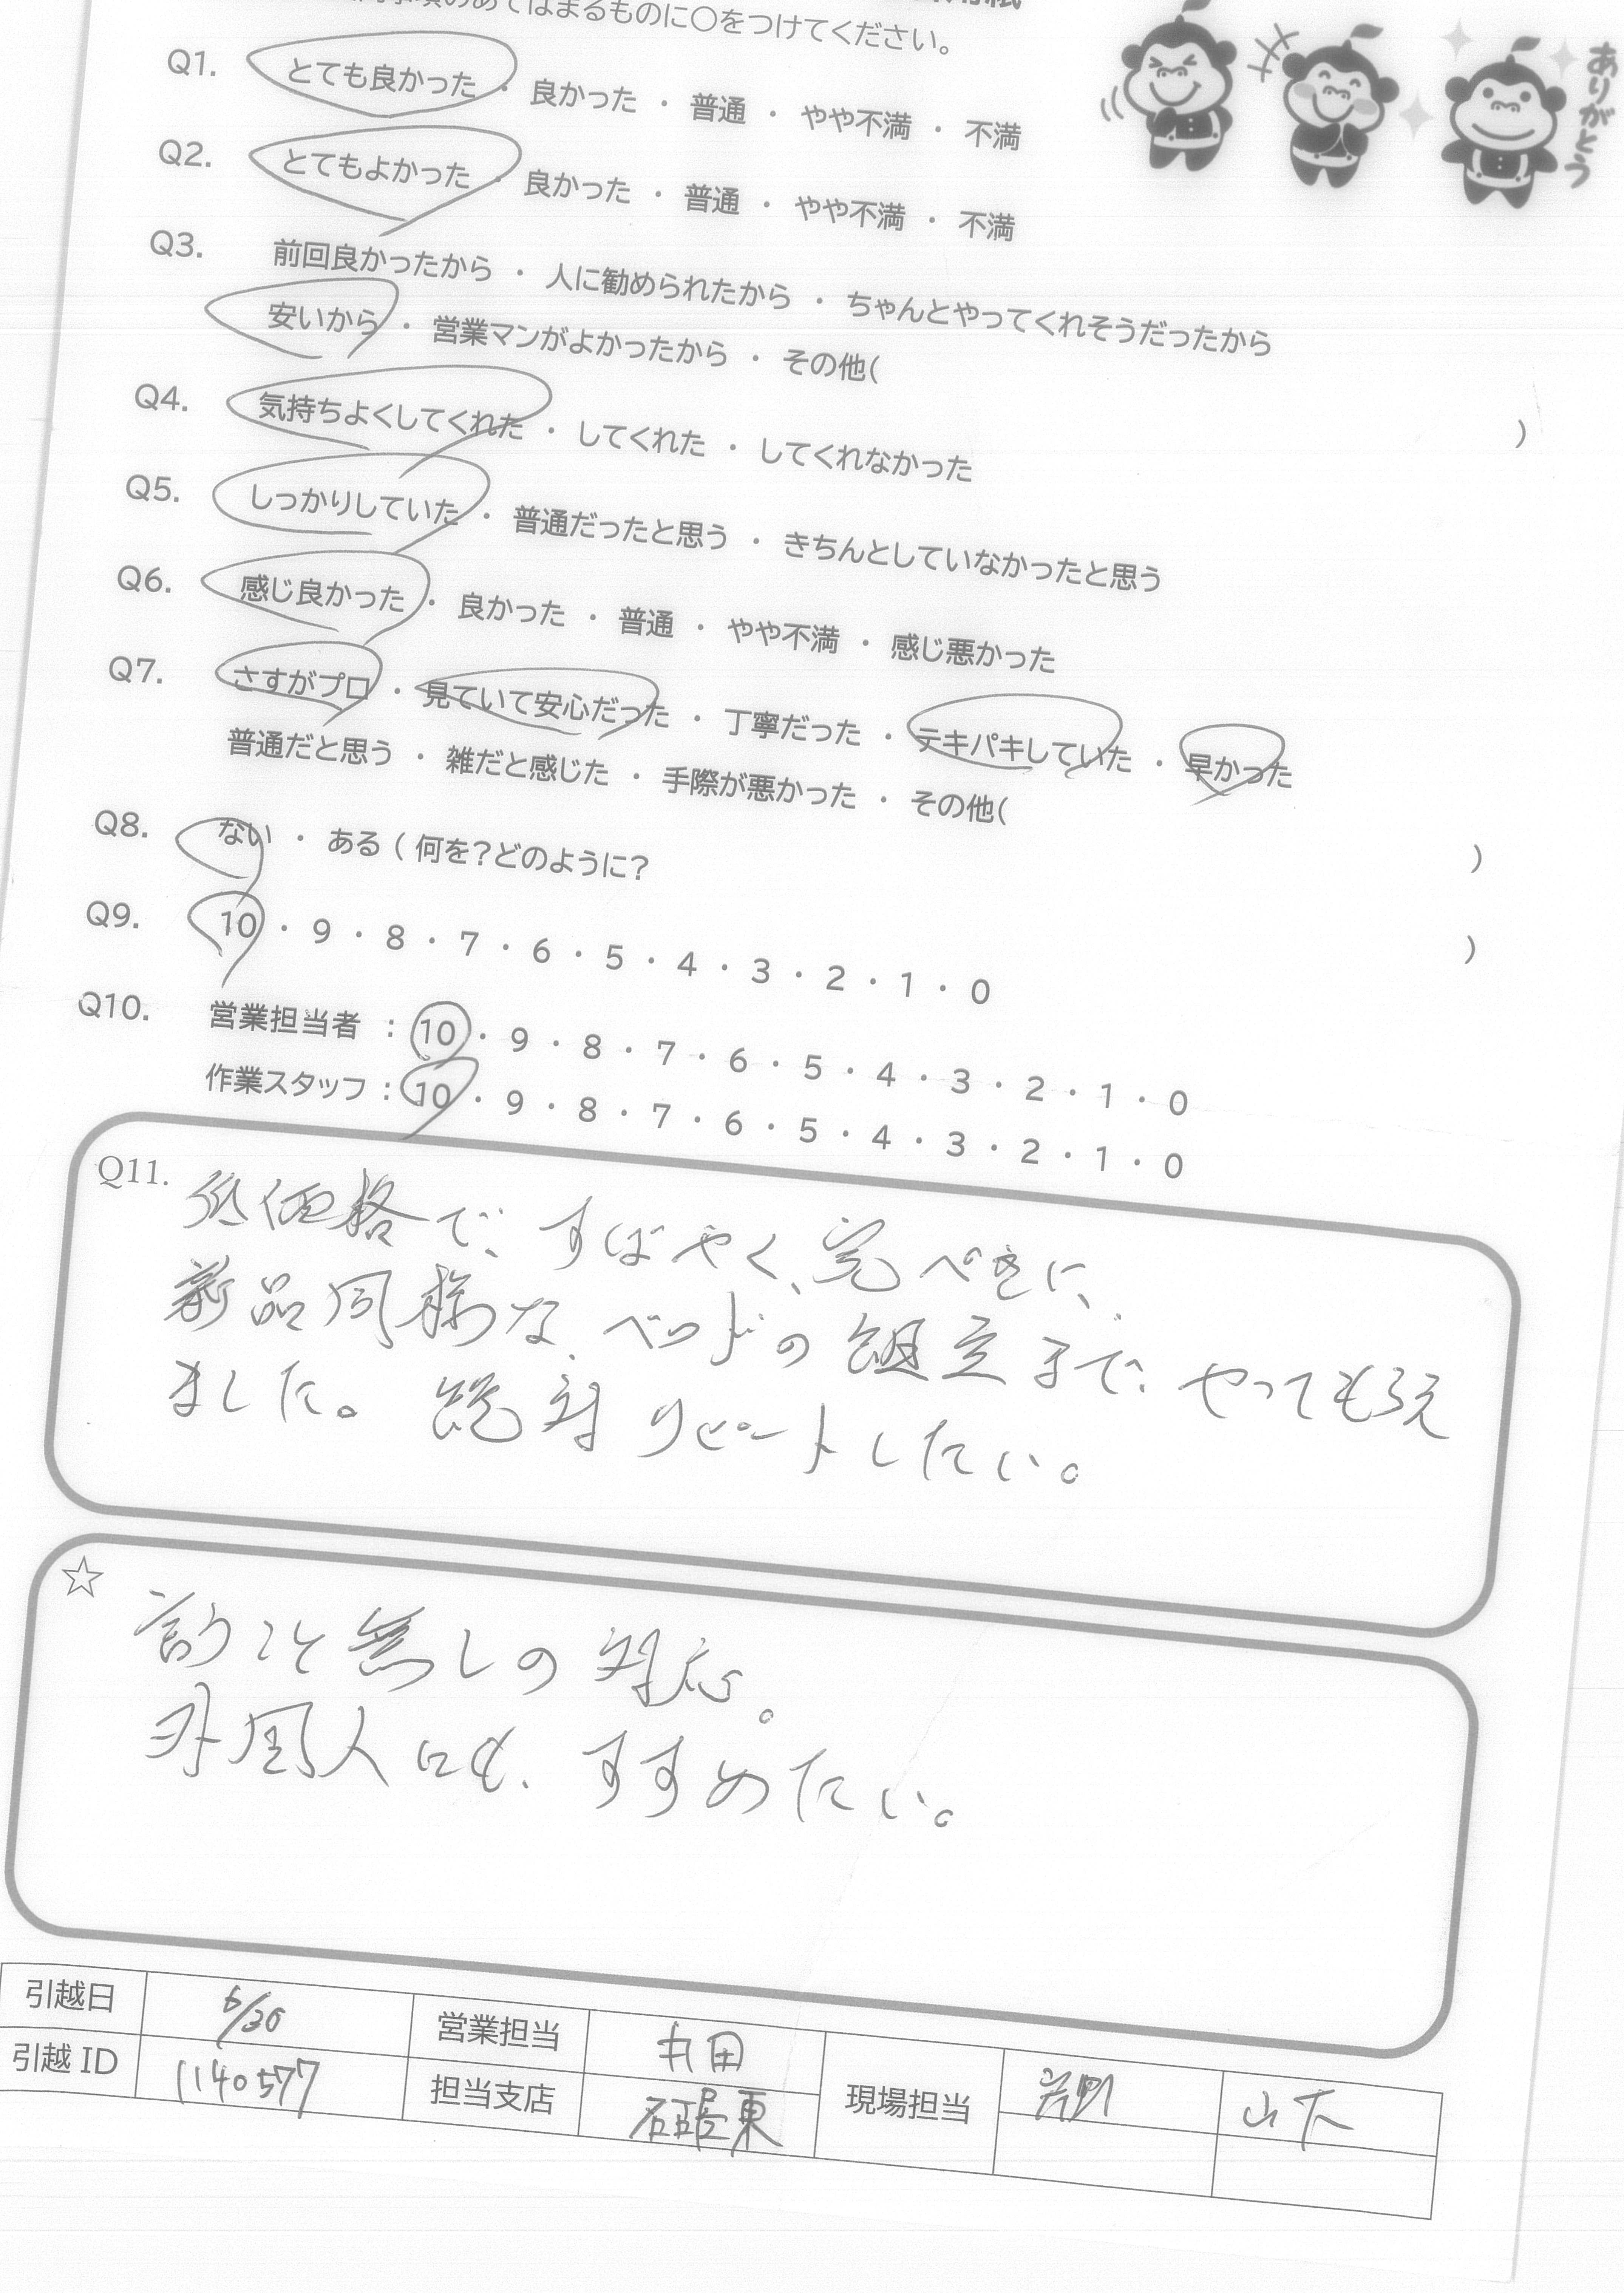 のあてはまるものに○をつけてください。
ありがとう
Q1. とても良かった ・ 良かった ・ 普通 ・ やや不満 ・ 不満
Q2. とてもよかった ・ 良かった ・ 普通 ・ やや不満 ・ 不満
Q3. 前回良かったから ・ 人に勧められたから ・ ちゃんとやってくれそうだったから
安いから ・ 営業マンがよかったから ・ その他( )
Q4. 気持ちよくしてくれた ・ してくれた ・ してくれなかった
Q5. しっかりしていた ・ 普通だったと思う ・ きちんとしていなかったと思う
Q6. 感じ良かった ・ 良かった ・ 普通 ・ やや不満 ・ 感じ悪かった
Q7. さすがプロ ・ 見ていて安心だった ・ 丁寧だった ・ テキパキしていた ・ 早かった
普通だと思う ・ 雑だと感じた ・ 手際が悪かった ・ その他( )
Q8. ない ・ ある ( 何を?どのように? )
Q9. 10 ・ 9 ・ 8 ・ 7 ・ 6 ・ 5 ・ 4 ・ 3 ・ 2 ・ 1 ・ 0
Q10. 営業担当者 : 10 ・ 9 ・ 8 ・ 7 ・ 6 ・ 5 ・ 4 ・ 3 ・ 2 ・ 1 ・ 0
作業スタッフ : 10 ・ 9 ・ 8 ・ 7 ・ 6 ・ 5 ・ 4 ・ 3 ・ 2 ・ 1 ・ 0
Q11. 低価格で、すばやく、完ぺきに、
新品同様な、ベッドの組立まで、やってもらえ
ました。絶対リピートしたい。
☆ 言うこと無しの対応。
外国人にも、すすめたい。
引越日 6/30 営業担当 丸田
引越 ID 1140577 担当支店 東 現場担当 山下